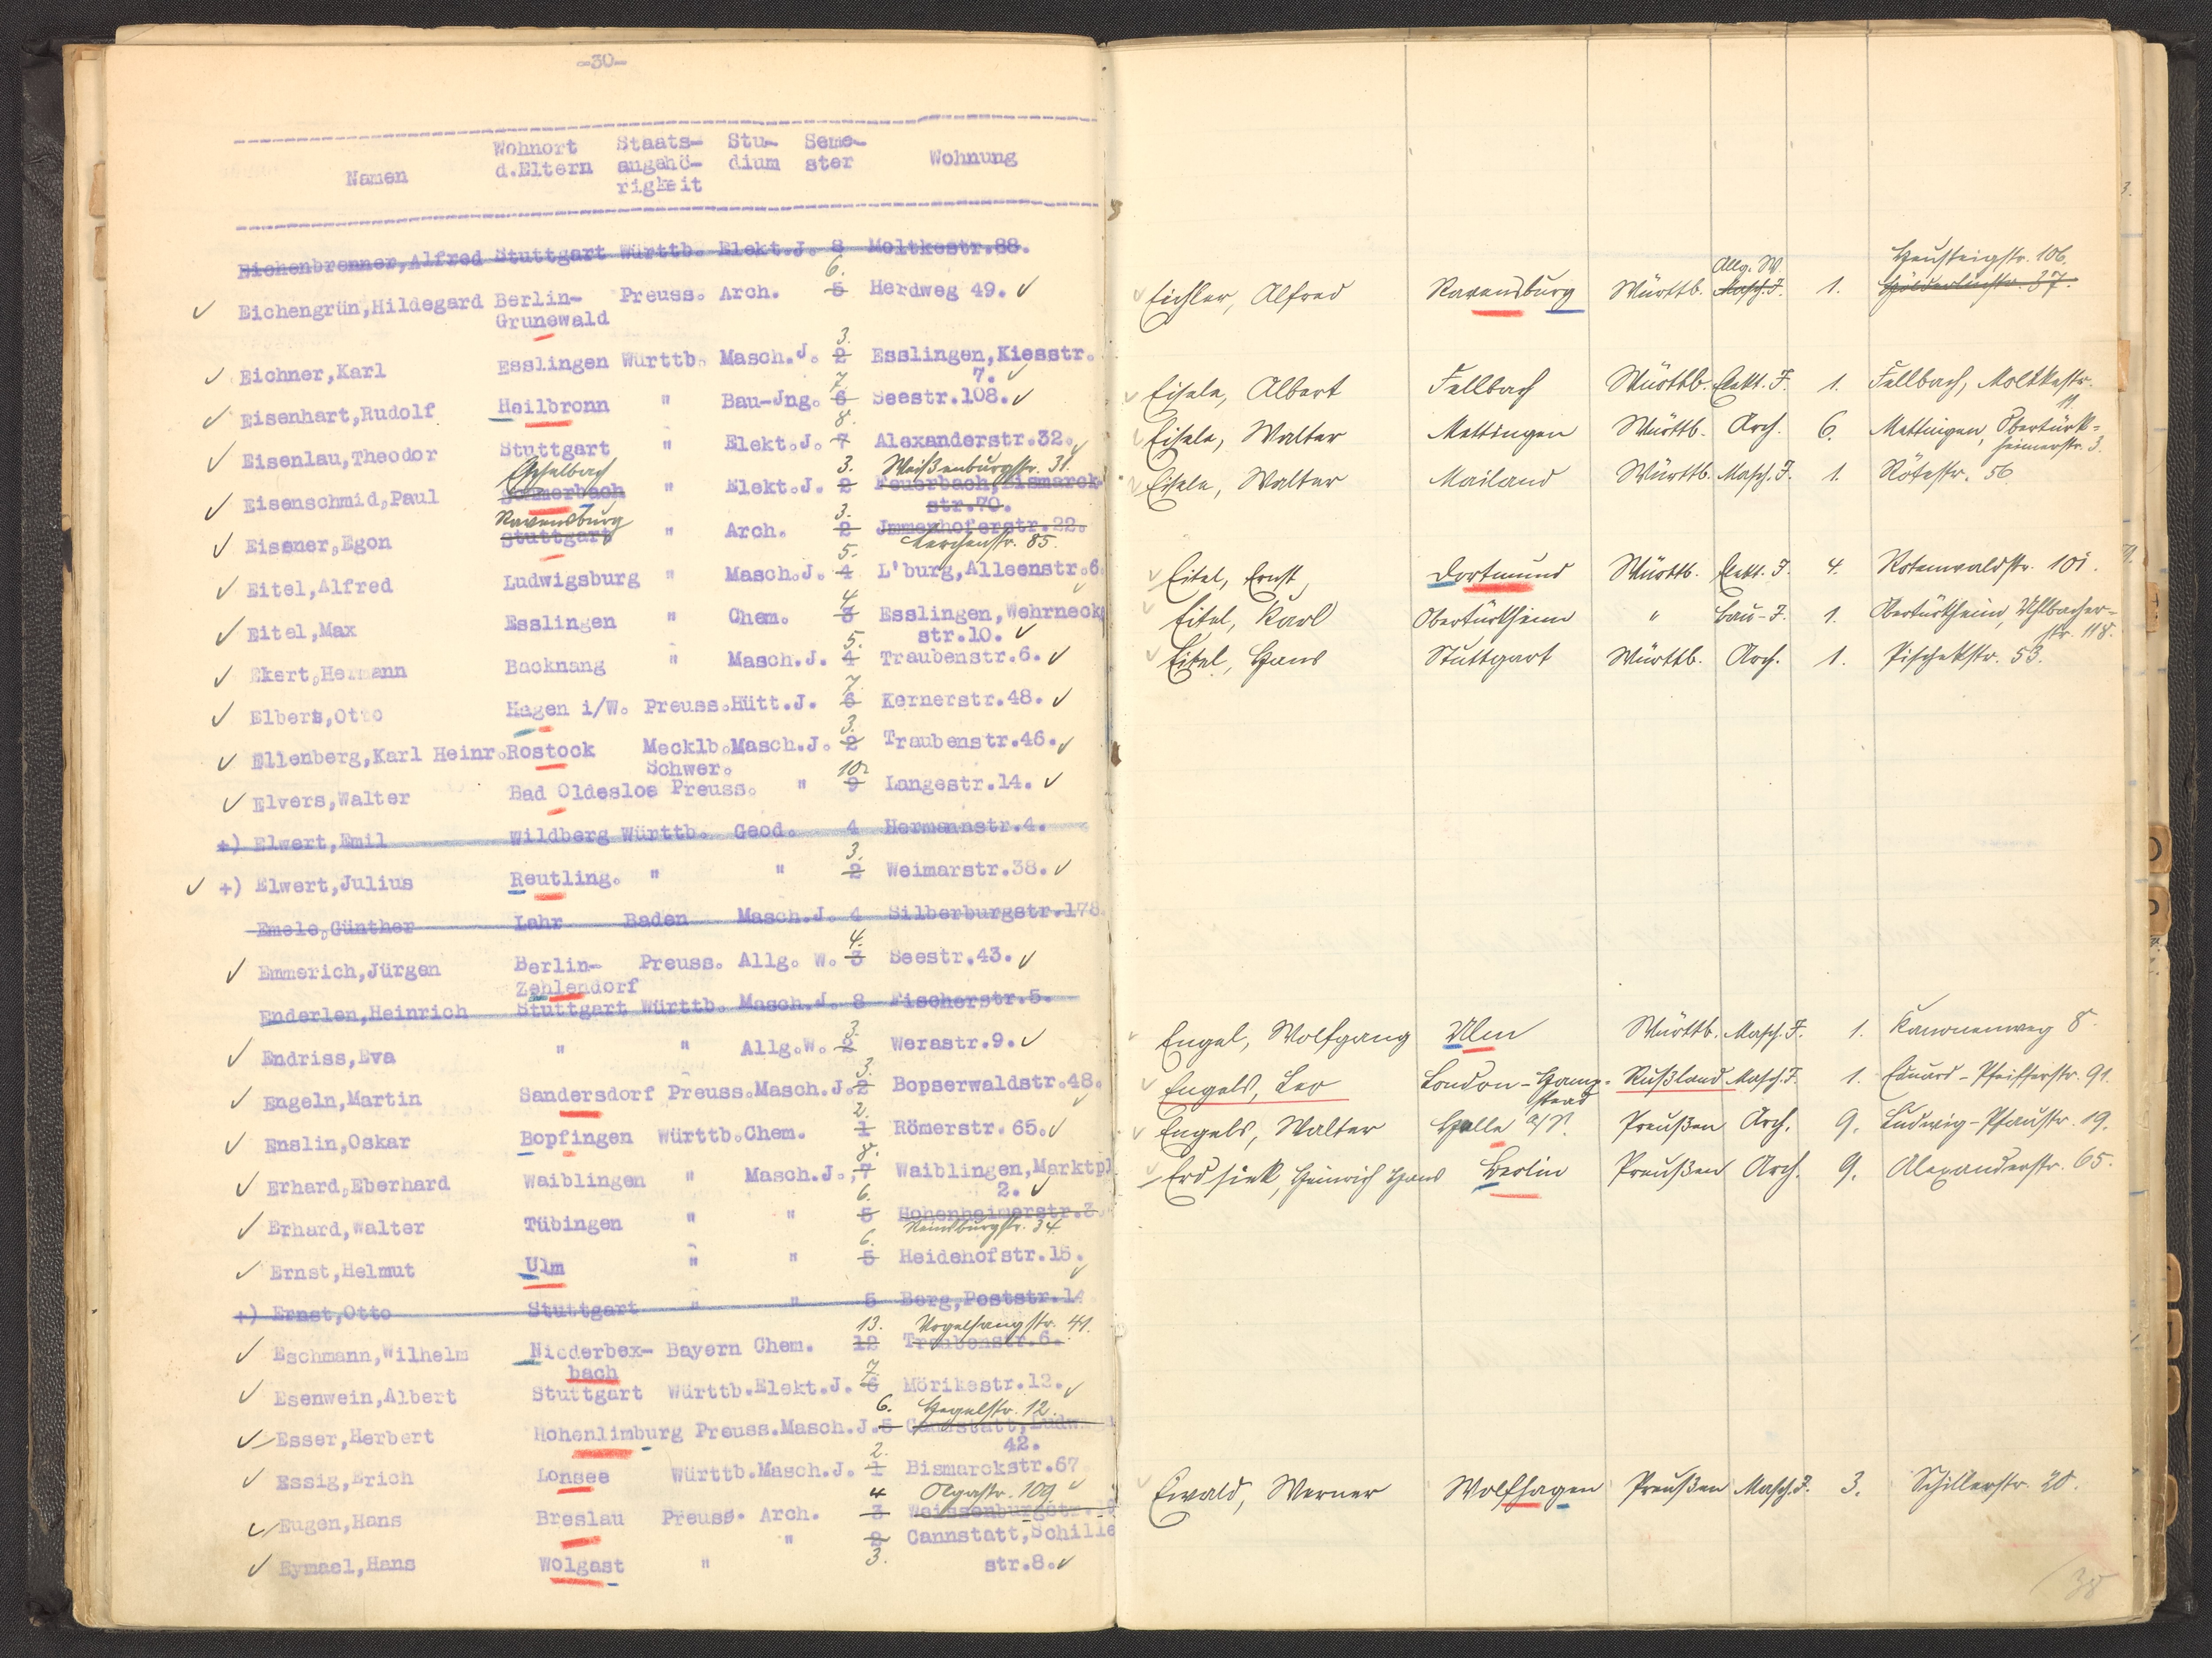 -30-
Namen Wohnort d.Eltern Staats- angehö- rigkeit Stu- dium Seme- ster Wohnung
Eichenbrenner,Alfred Stuttgart Württb. Elekt.J. 8 Moltkestr.88.
6.
Eichengrün,Hildegard Berlin- Preuss. Arch. 5 Herdweg 49.
Grunewald
3.
Eichner,Karl Esslingen Württb. Masch.J. 2 Esslingen,Kiesstr.
7. 7.
Eisenhart,Rudolf Heilbronn " Bau-Jng. 6 Seestr.108.
8.
Eisenlau,Theodor Stuttgart " Elekt.J. 7 Alexanderstr.32.
3. Weißenburgstr. 31.
Eisenschmid,Paul " Elekt.J. 2 Feuerbach,Bismarck-
str.70.
Ravensburg 3.
Eisener,Egon Stuttgart " Arch. 2 Jmmenhoferstr.22.
5. Lerchenstr. 85.
Eitel,Alfred Ludwigsburg " Masch.J. 4 L'burg,Alleenstr.6.
4.
Eitel,Max Esslingen " Chem. 3 Esslingen,Wehrneck
5. str.10.
Ekert,Hermann Backnang " Masch.J. 4 Traubenstr.6.
7.
Elbers,Otto Hagen i/W. Preuss.Hütt.J. 6 Kernerstr.48.
3.
Ellenberg,Karl Heinr.Rostock Mecklb.Masch.J. 2 Traubenstr.46.
Schwer. 10.
Elvers,Walter Bad Oldesloe Preuss. " 9 Langestr.14.
+) Elwert,Emil Wildberg Württb. Geod. 4 Hermannstr.4.
3.
+) Elwert,Julius Reutling. " " 2 Weimarstr.38.
Emele,Günther Lahr Baden Masch.J. 4 Silberburgstr.178.
4.
Emmerich,Jürgen Berlin- Preuss. Allg. W. 3 Seestr.43.
Zehlendorf
Enderlen,Heinrich Stuttgart Württb. Masch.J. 8 Fischerstr.5.
3.
Endriss,Eva " " Allg.W. 2 Werastr.9.
3.
Engeln,Martin Sandersdorf Preuss.Masch.J.2 Bopserwaldstr.48.
2.
Enslin,Oskar Bopfingen Württb.Chem. 1 Römerstr.65.
8.
Erhard,Eberhard Waiblingen " Masch.J., 7 Waiblingen,Marktpl
6. 2.
Erhard,Walter Tübingen " " 5 Hohenheimerstr.3
6. Reinsburgstr. 34.
Ernst,Helmut Ulm " " 5 Heidehofstr.15.
+) Ernst,Otto Stuttgart " " 5 Berg,Poststr.14
13. Vogelsangstr. 41.
Eschmann,Wilhelm Niederbex- Bayern Chem. 12 Traubenstr.6.
bach 7.
Esenwein,Albert Stuttgart Württb.Elekt.J. 6 Mörikestr.12.
6. Hegelstr. 12.
Esser,Herbert Hohenlimburg Preuss.Masch.J.5 Cannstatt,Ludw.
2. 42.
Essig,Erich Lonsee Württb.Masch.J. 1 Bismarckstr.67
4 Olgastr. 109
Eugen,Hans Breslau Preuss. Arch. 3 Weissenburgstr.
" 2 Cannstatt,Schille
Eymael,Hans Wolgast " 3. str.8.
Allg. W. Heusteigstr. 106.
Eichler, Alfred Ravensburg Württb. Masch.J. 1. Hölderlinstr. 37.
Eisele, Albert Fellbach Württb. Elekt. J. 1. Fellbach, Moltkestr.
11.
Eisele, Walter Mettingen Württb. Arch. 6. Mettingen, Obertürk-
heimerstr. 3.
Eisele, Walter Mailand Württb. Masch. J. 1. Rötestr. 56.
Eitel, Ernst, Dortmund Württb. Elekt. J. 4. Rotenwaldstr. 101.
Eitel, Karl Obertürkheim " Bau-J. 1. Obertürkheim, Uhlbacher-
str. 118.
Eitel, Hans Stuttgart Württb. Arch. 1. Pischekstr. 53.
Engel, Wolfgang Ulm Württb. Masch. J. 1. Kanonenweg 8.
Engels, Leo London-Hamp- Rußland Masch. J. 1. Eduard-Pfeifferstr. 91.
stead
Engels, Walter Halle a/S. Preußen Arch. 9. Ludwig-Pfaustr. 19.
Erdsiek, Heinrich Hans Berlin Preußen Arch. 9. Alexanderstr. 65.
Ewald, Werner Wolfhagen Preußen Masch. J. 3. Schillerstr. 20.
38